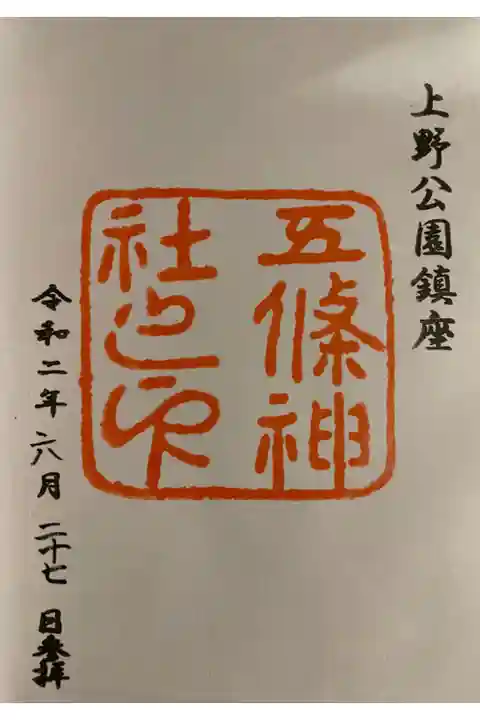 上野公園鎮座
五條神
社之印
令和二年六月二十七日参拝